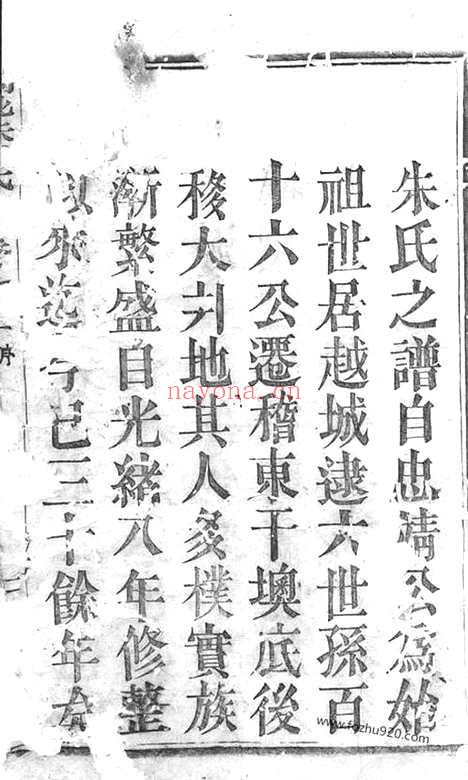 朱氏之譜自忠靖公爲始
祖世居越城逮六世孫百
十六公遷稽東干墺底後
移大刋地其人多樸實族
漸繁盛自光緒八年修整
以來迄今已三十餘年
序
nayona.cn
www.fozhu920.com